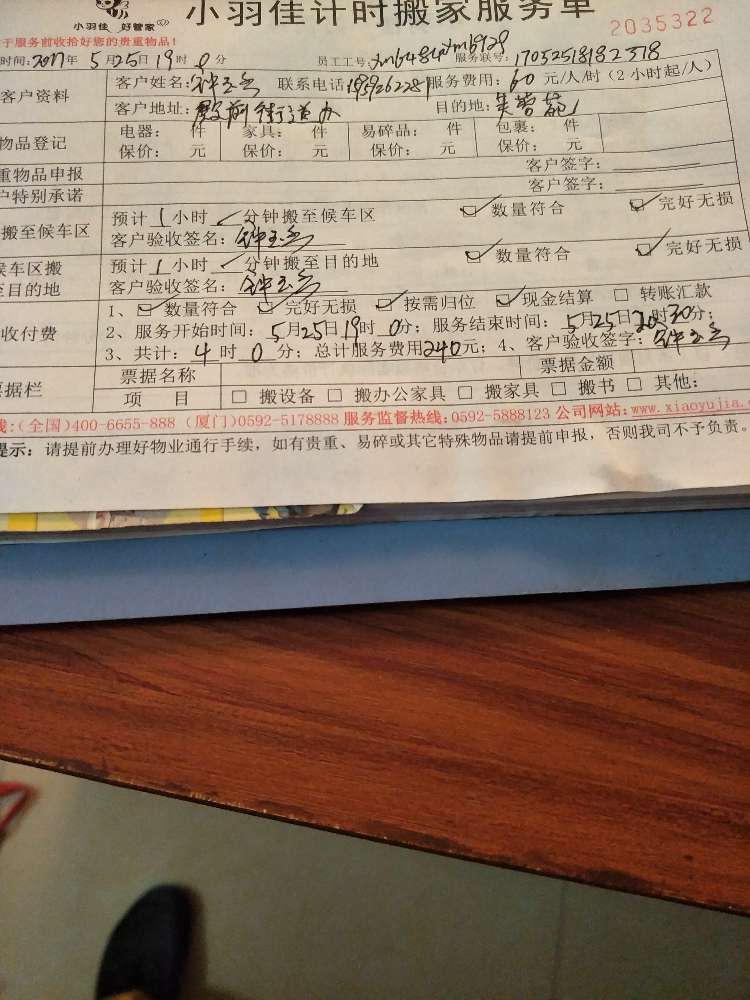 小羽佳计时搬家服务单
小羽佳 好管家
2035322
于服务前收拾好您的贵重物品!
时间:2017年 5月25日19时0分 员工工号: 服务联号: 1703251818 2378
客户资料 客户姓名: 联系电话: 服务费用: 60元/人/时(2小时起/人)
客户地址: 殿前街道办 目的地:
物品登记 电器: 件 家具: 件 易碎品: 件 包裹: 件
保价: 元 保价: 元 保价: 元 保价: 元
重物品申报 客户签字:
户特别承诺 客户签字:
搬至候车区 预计1小时 分钟搬至候车区 ☑ 数量符合 ☑ 完好无损
客户验收签名:
候车区搬 预计1小时 分钟搬至目的地 ☑ 数量符合 ☑ 完好无损
至目的地 客户验收签名:
收付费 1、☑ 数量符合 ☑ 完好无损 ☑ 按需归位 ☑ 现金结算 □ 转账汇款
2、服务开始时间: 5月25日19时0分; 服务结束时间: 5月25日20时30分;
3、共计: 4时0分; 总计服务费用240元; 4、客户验收签字:
票据栏 票据名称 票据金额
项 目 □ 搬设备 □ 搬办公家具 □ 搬家具 □ 搬书 □ 其他:
线:(全国)400-6655-888 (厦门)0592-5178888 服务监督热线:0592-5888123 公司网站:www.xiaoyujia.
提示: 请提前办理好物业通行手续,如有贵重、易碎或其它特殊物品请提前申报,否则我司不予负责。